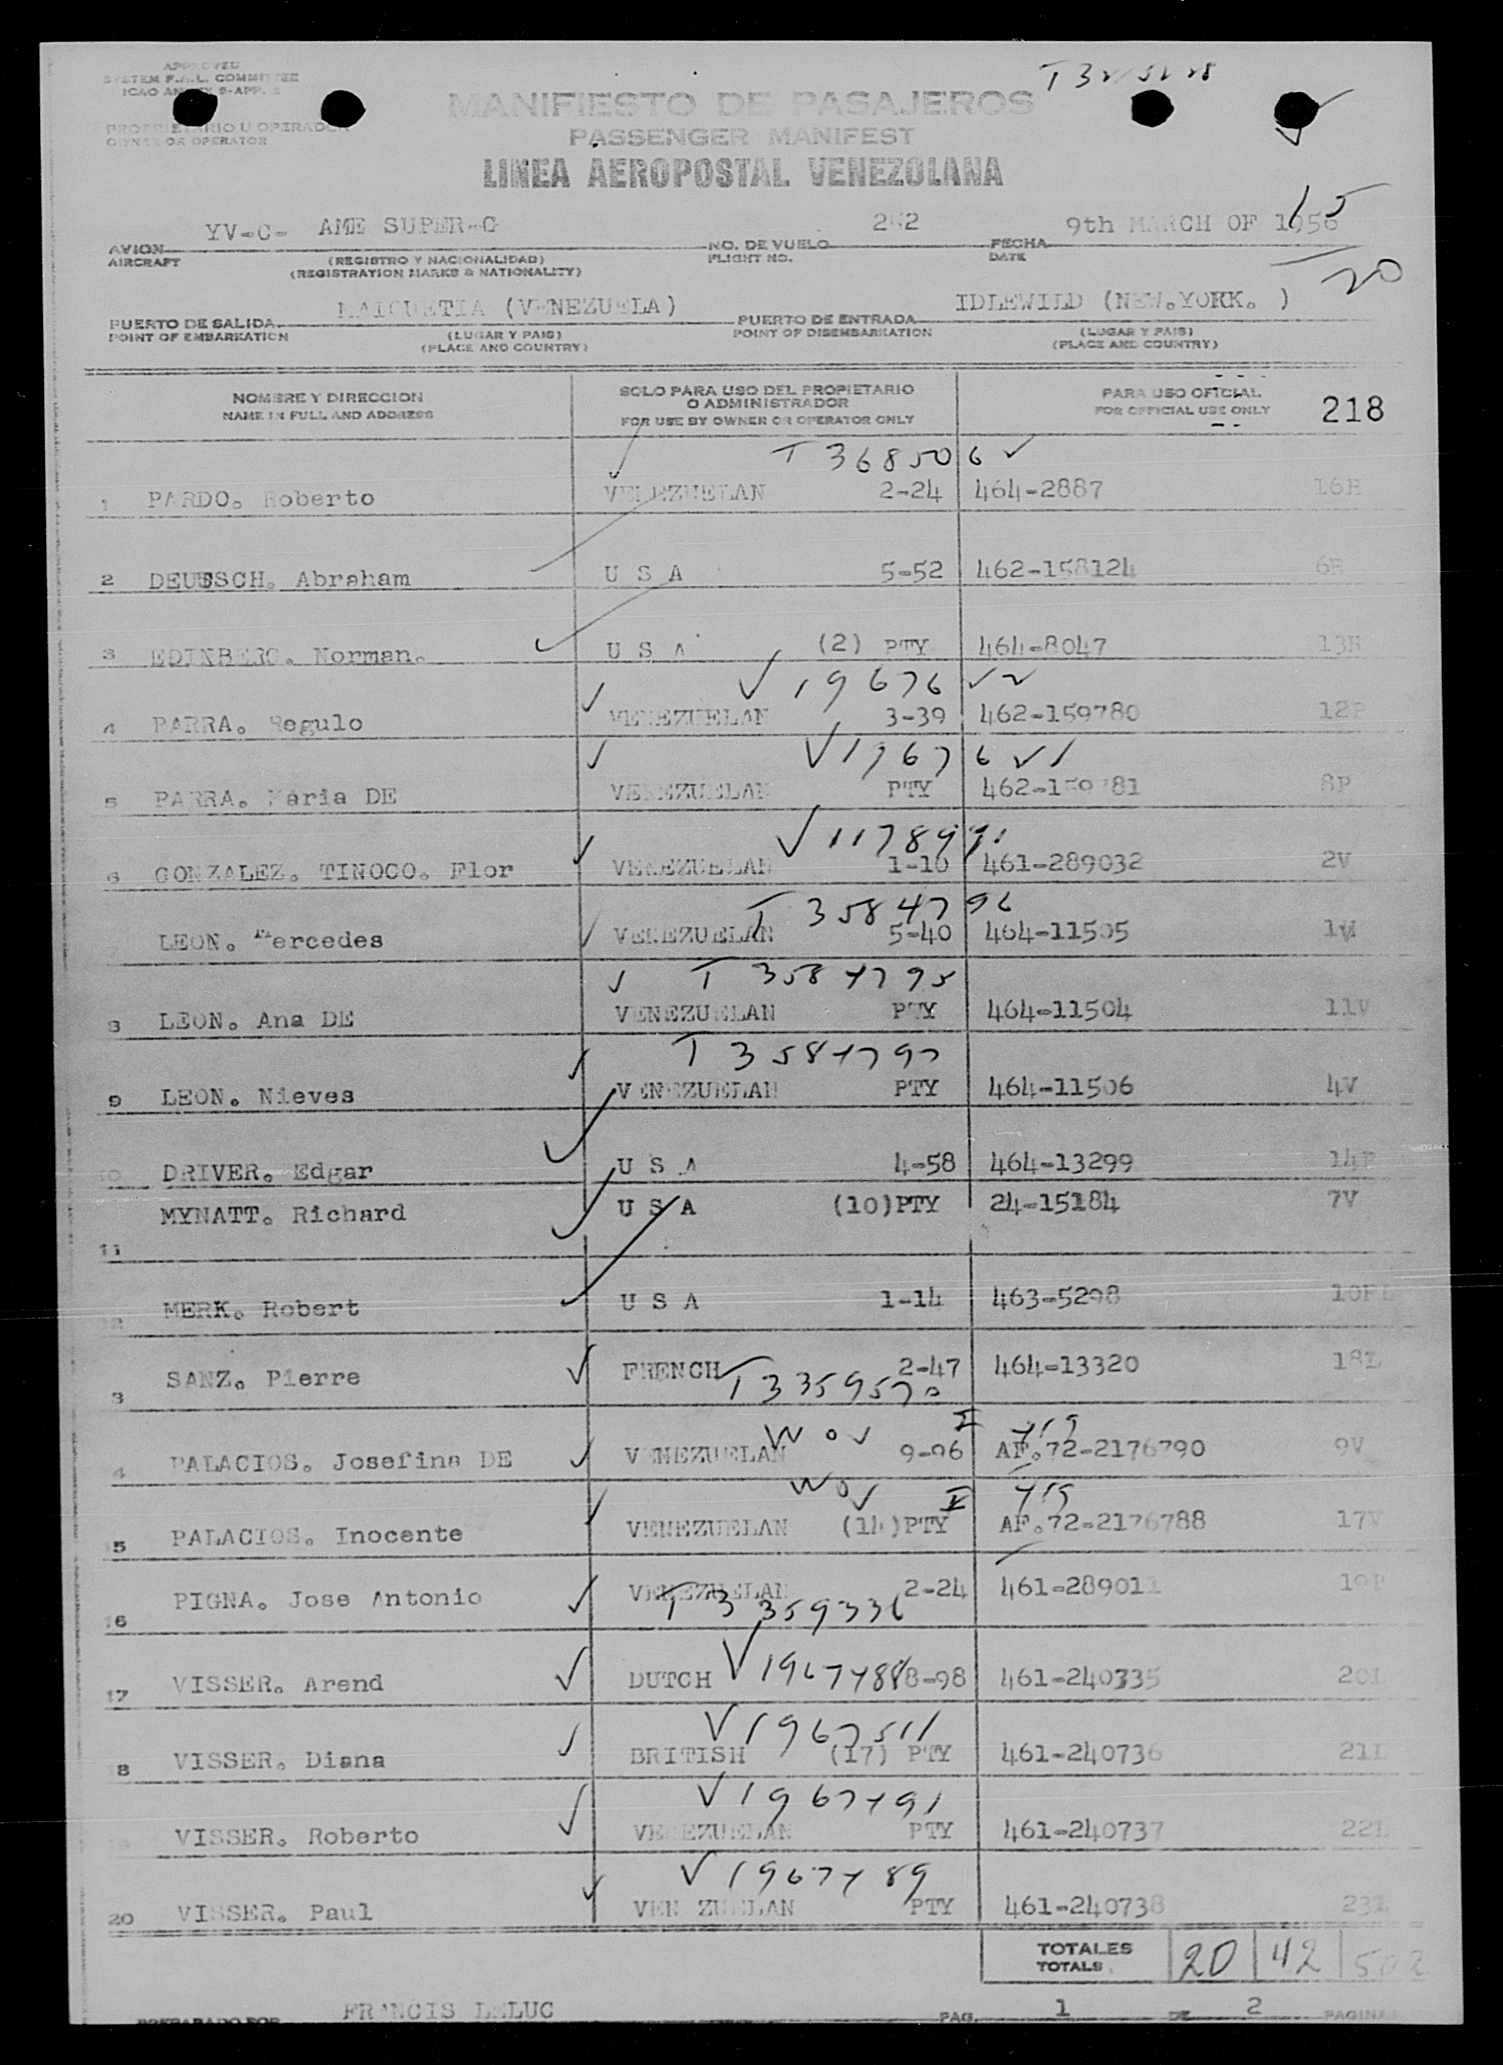 APPROVED
SYSTEM F.A.L. COMMITTEE
ICAO ANNEX 9-APP.
PROPIETARIO U OPERADOR
OWNER OR OPERATOR
MANIFIESTO DE PASAJEROS
PASSENGER MANIFEST
LINEA AEROPOSTAL VENEZOLANA
15
20
AVION YV-C- AME SUPER-G NO. DE VUELO 252 FECHA 9th MARCH OF 1956
AIRCRAFT (REGISTRO Y NACIONALIDAD) FLIGHT NO. DATE
(REGISTRATION MARKS & NATIONALITY)
PUERTO DE SALIDA MAIQUETIA (VENEZUELA) PUERTO DE ENTRADA IDLEWILD (NEW.YORK. )
POINT OF EMBARKATION (LUGAR Y PAIS) POINT OF DISEMBARKATION (LUGAR Y PAIS)
(PLACE AND COUNTRY) (PLACE AND COUNTRY)
NOMBRE Y DIRECCION SOLO PARA USO DEL PROPIETARIO O ADMINISTRADOR PARA USO OFICIAL
NAME IN FULL AND ADDRESS FOR USE BY OWNER OR OPERATOR ONLY FOR OFFICIAL USE ONLY 218
T 368506 ✓
1 PARDO. Roberto VENEZUELAN 2-24 464-2887
2 DEUTSCH. Abraham U S A 5-52 462-158124
3 EDINBERG. Norman. U S A (2) PTY 464-8047 13H
V 19676
4 PARRA. Regulo VENEZUELAN 3-39 462-159780 12P
V 19676
5 PARRA. Maria DE VENEZUELAN PTY 462-159781 8P
6 GONZALEZ. TINOCO. Flor VENEZUELAN 1-10 461-289032 2V
T 3584796
LEON. Mercedes VENEZUELAN 5-40 464-11505 1V
T 3584795
8 LEON. Ana DE VENEZUELAN PTY 464-11504 11V
T 3584797
9 LEON. Nieves VENEZUELAN PTY 464-11506 4V
10 DRIVER. Edgar U S A 4-58 464-13299 14P
MYNATT. Richard U S A (10)PTY 24-15184 7V
11
12 MERK. Robert U S A 1-14 463-5298
SANZ. Pierre FRENCH 2-47 464-13320 18L
3 T 3359570
WOV
4 PALACIOS. Josefina DE VENEZUELAN 9-96 AF.72-2176790 9V
WOV
15 PALACIOS. Inocente VENEZUELAN (14)PTY AF.72-2176788 17V
PIGNA. Jose Antonio VENEZUELAN 2-24 461-289011
16 T 3359336
17 VISSER. Arend DUTCH V 1967488 8-98 461-240335 20L
V 1967511
18 VISSER. Diana BRITISH (17) PTY 461-240736 21L
V 1967491
VISSER. Roberto VENEZUELAN PTY 461-240737 22L
V 1967489
20 VISSER. Paul VENEZUELAN PTY 461-240738 23L
TOTALES
TOTALS 20 42
PREPARADO POR FRANCIS LELUC PAG. 1 DE 2 PAGINAS